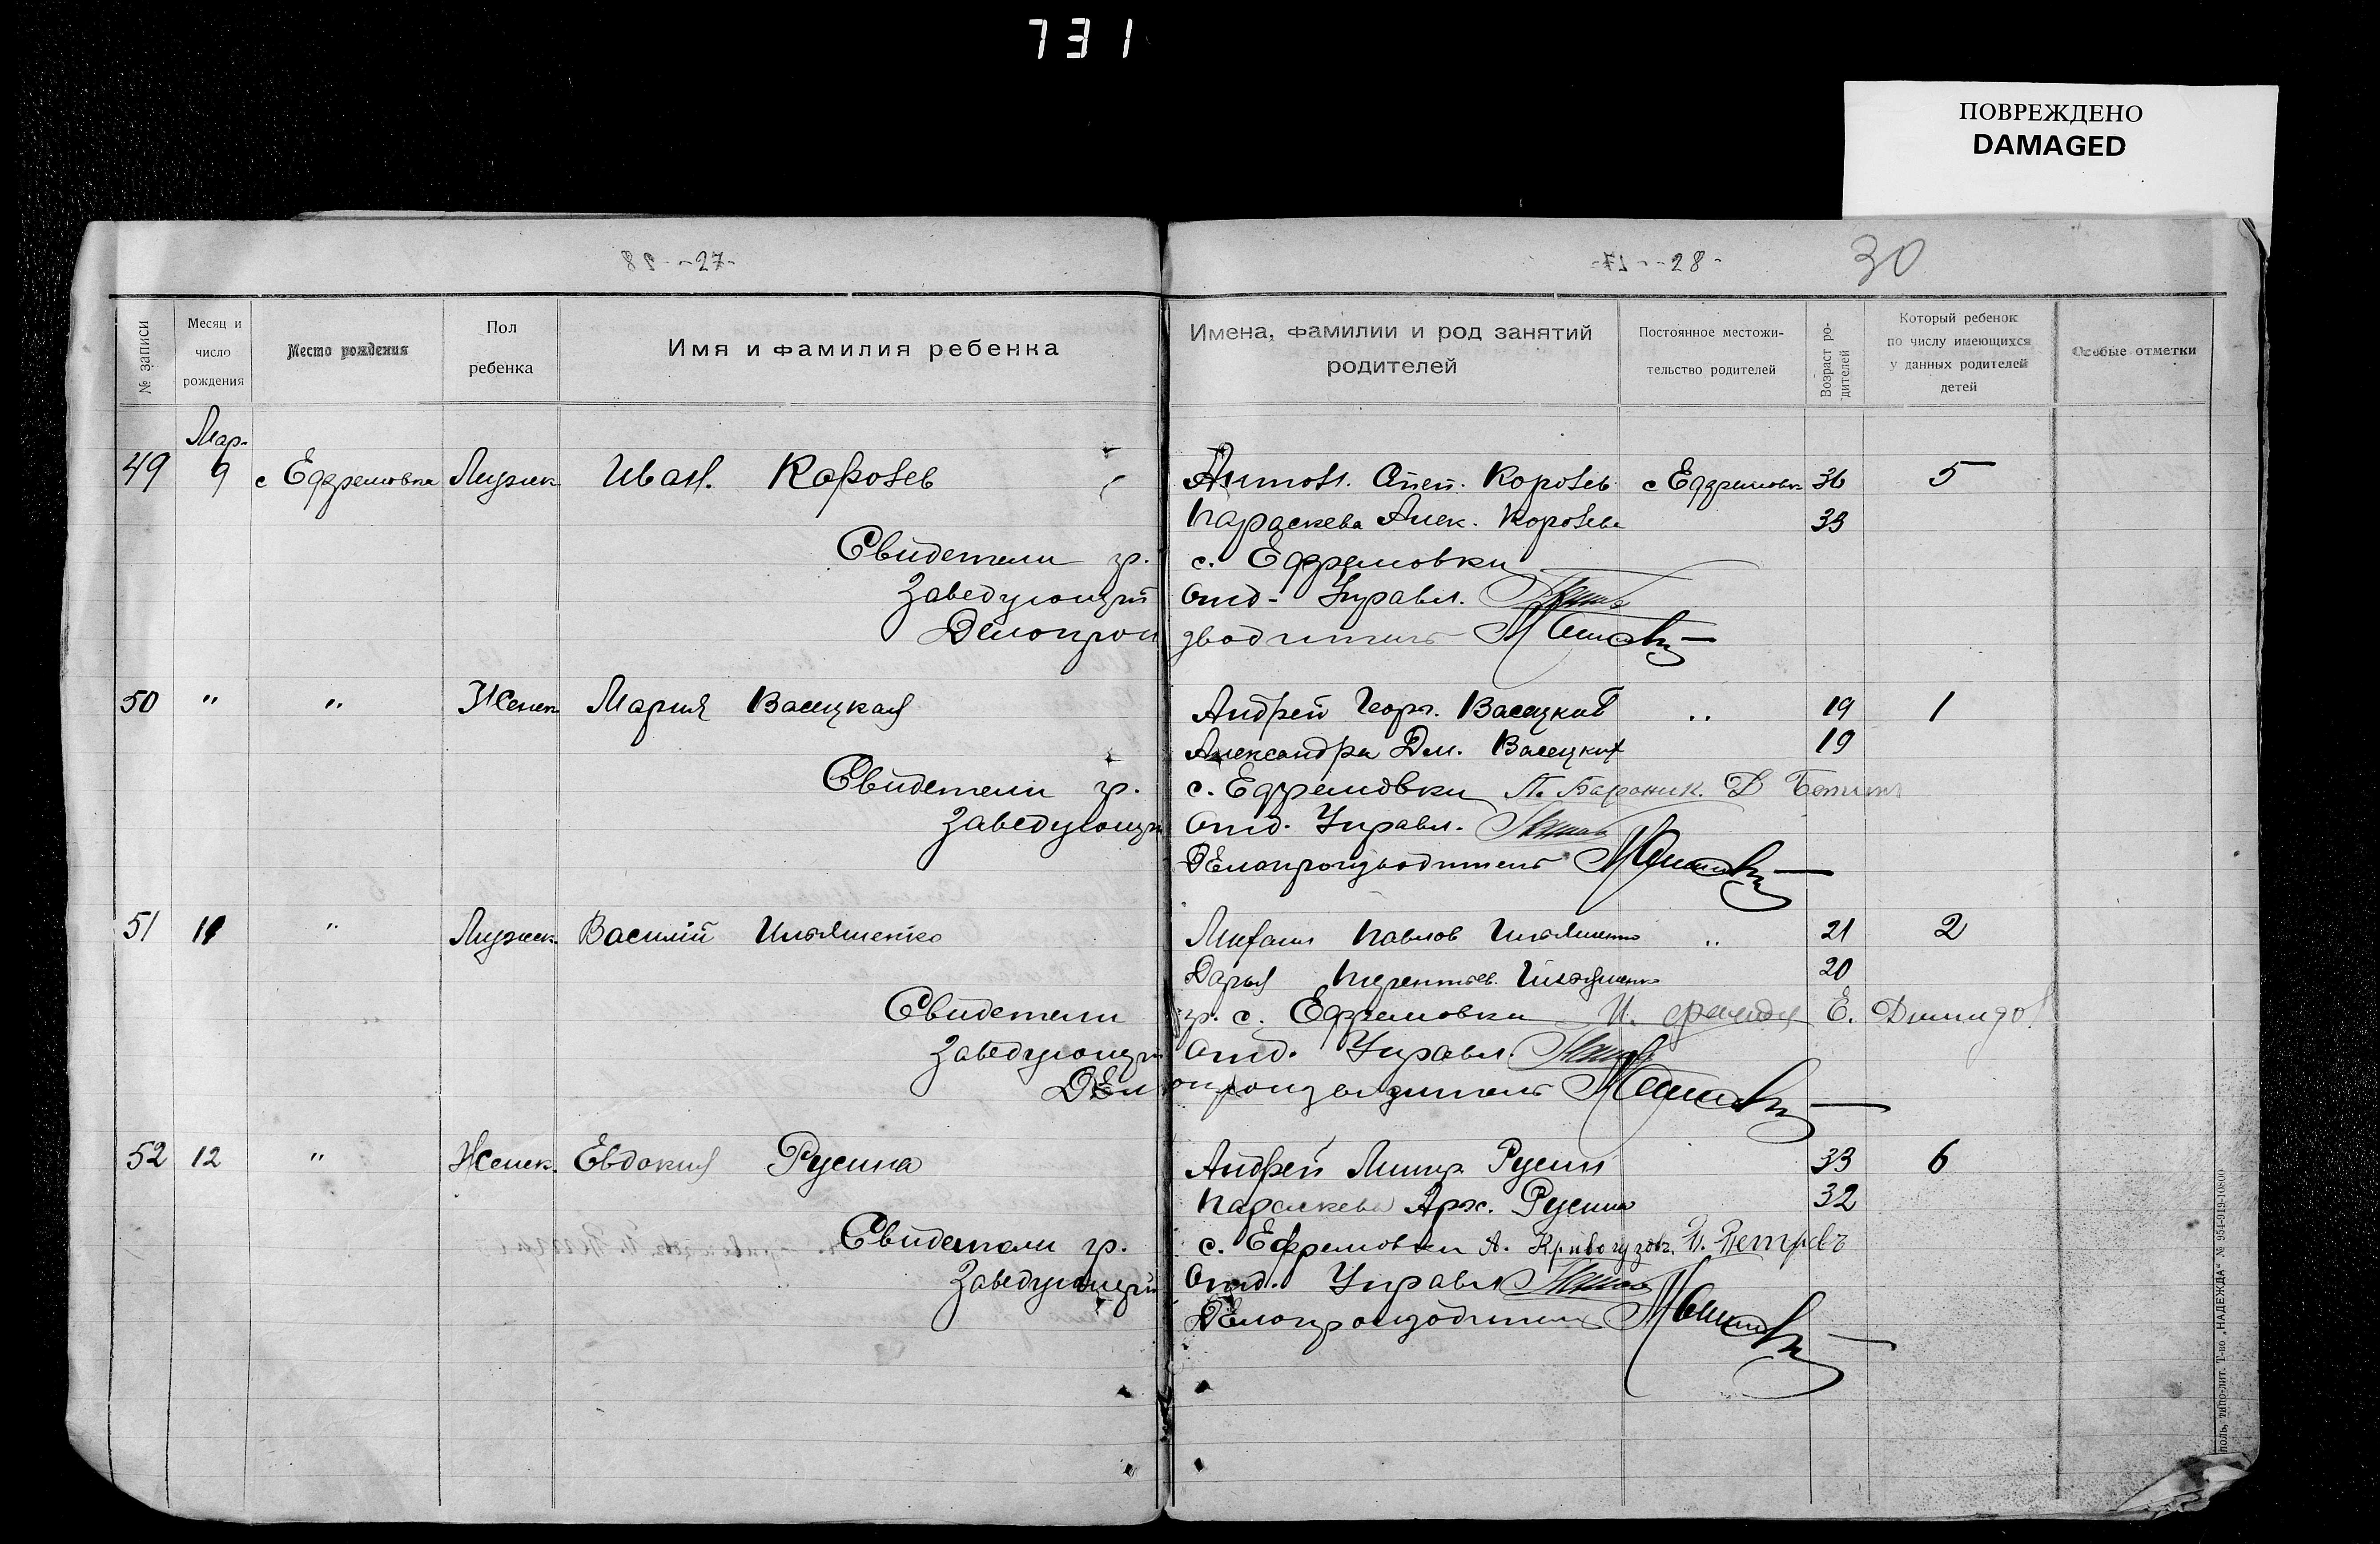 731
ПОВРЕЖДЕНО
DAMAGED
-27-
-28-
30
№ записи
Месяц и число рождения
Место рождения
Пол ребенка
Имя и фамилия ребенка
Имена, фамилии и род занятий родителей
Постоянное местожительство родителей
Возраст родителей
Который ребенок по числу имеющихся у данных родителей детей
Особые отметки
Мар-
49 9 с Ефремовка Мужск Иван. Коровев Антон. Степ. Коровев с Ефремовк 36 5
Параскева Алек. Коровева 33
Свидетели гр. с. Ефремовки
Заведующий Отд- Управл.
Делопроизводитель
50 " " Женск Мария Васецкая Андрей Геор. Васецкий " 19 1
Александра Дм. Васецких 19
Свидетели гр. с. Ефремовки П. Бараник. Д
Заведующий Отд. Управл.
Делопроизводитель
51 11 " Мужск. Василий Ильяшенко Михаил Павлов Ильяшенко " 21 2
Дарья Терентьев. Ильяшенко 20
Свидетели гр. с. Ефремовки И. Е.
Заведующий Отд. Управл.
Делопроизводитель
52 12 " Женск. Евдокия Русина Андрей Митр. Русин 33 6
Параскева Арх. Русина 32
Свидетели гр. с. Ефремовки А. Кривогузовъ. П. Петровъ
Заведующий Отд. Управл
Делопроизводитель
поль, типо-лит. Т-во „НАДЕЖДА" № 954-919-10800